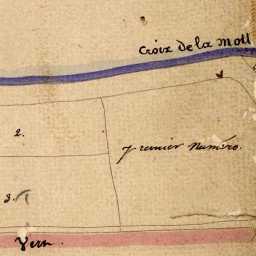 Croix de la Mott
2.
premier Numéro.
3.
Vern.